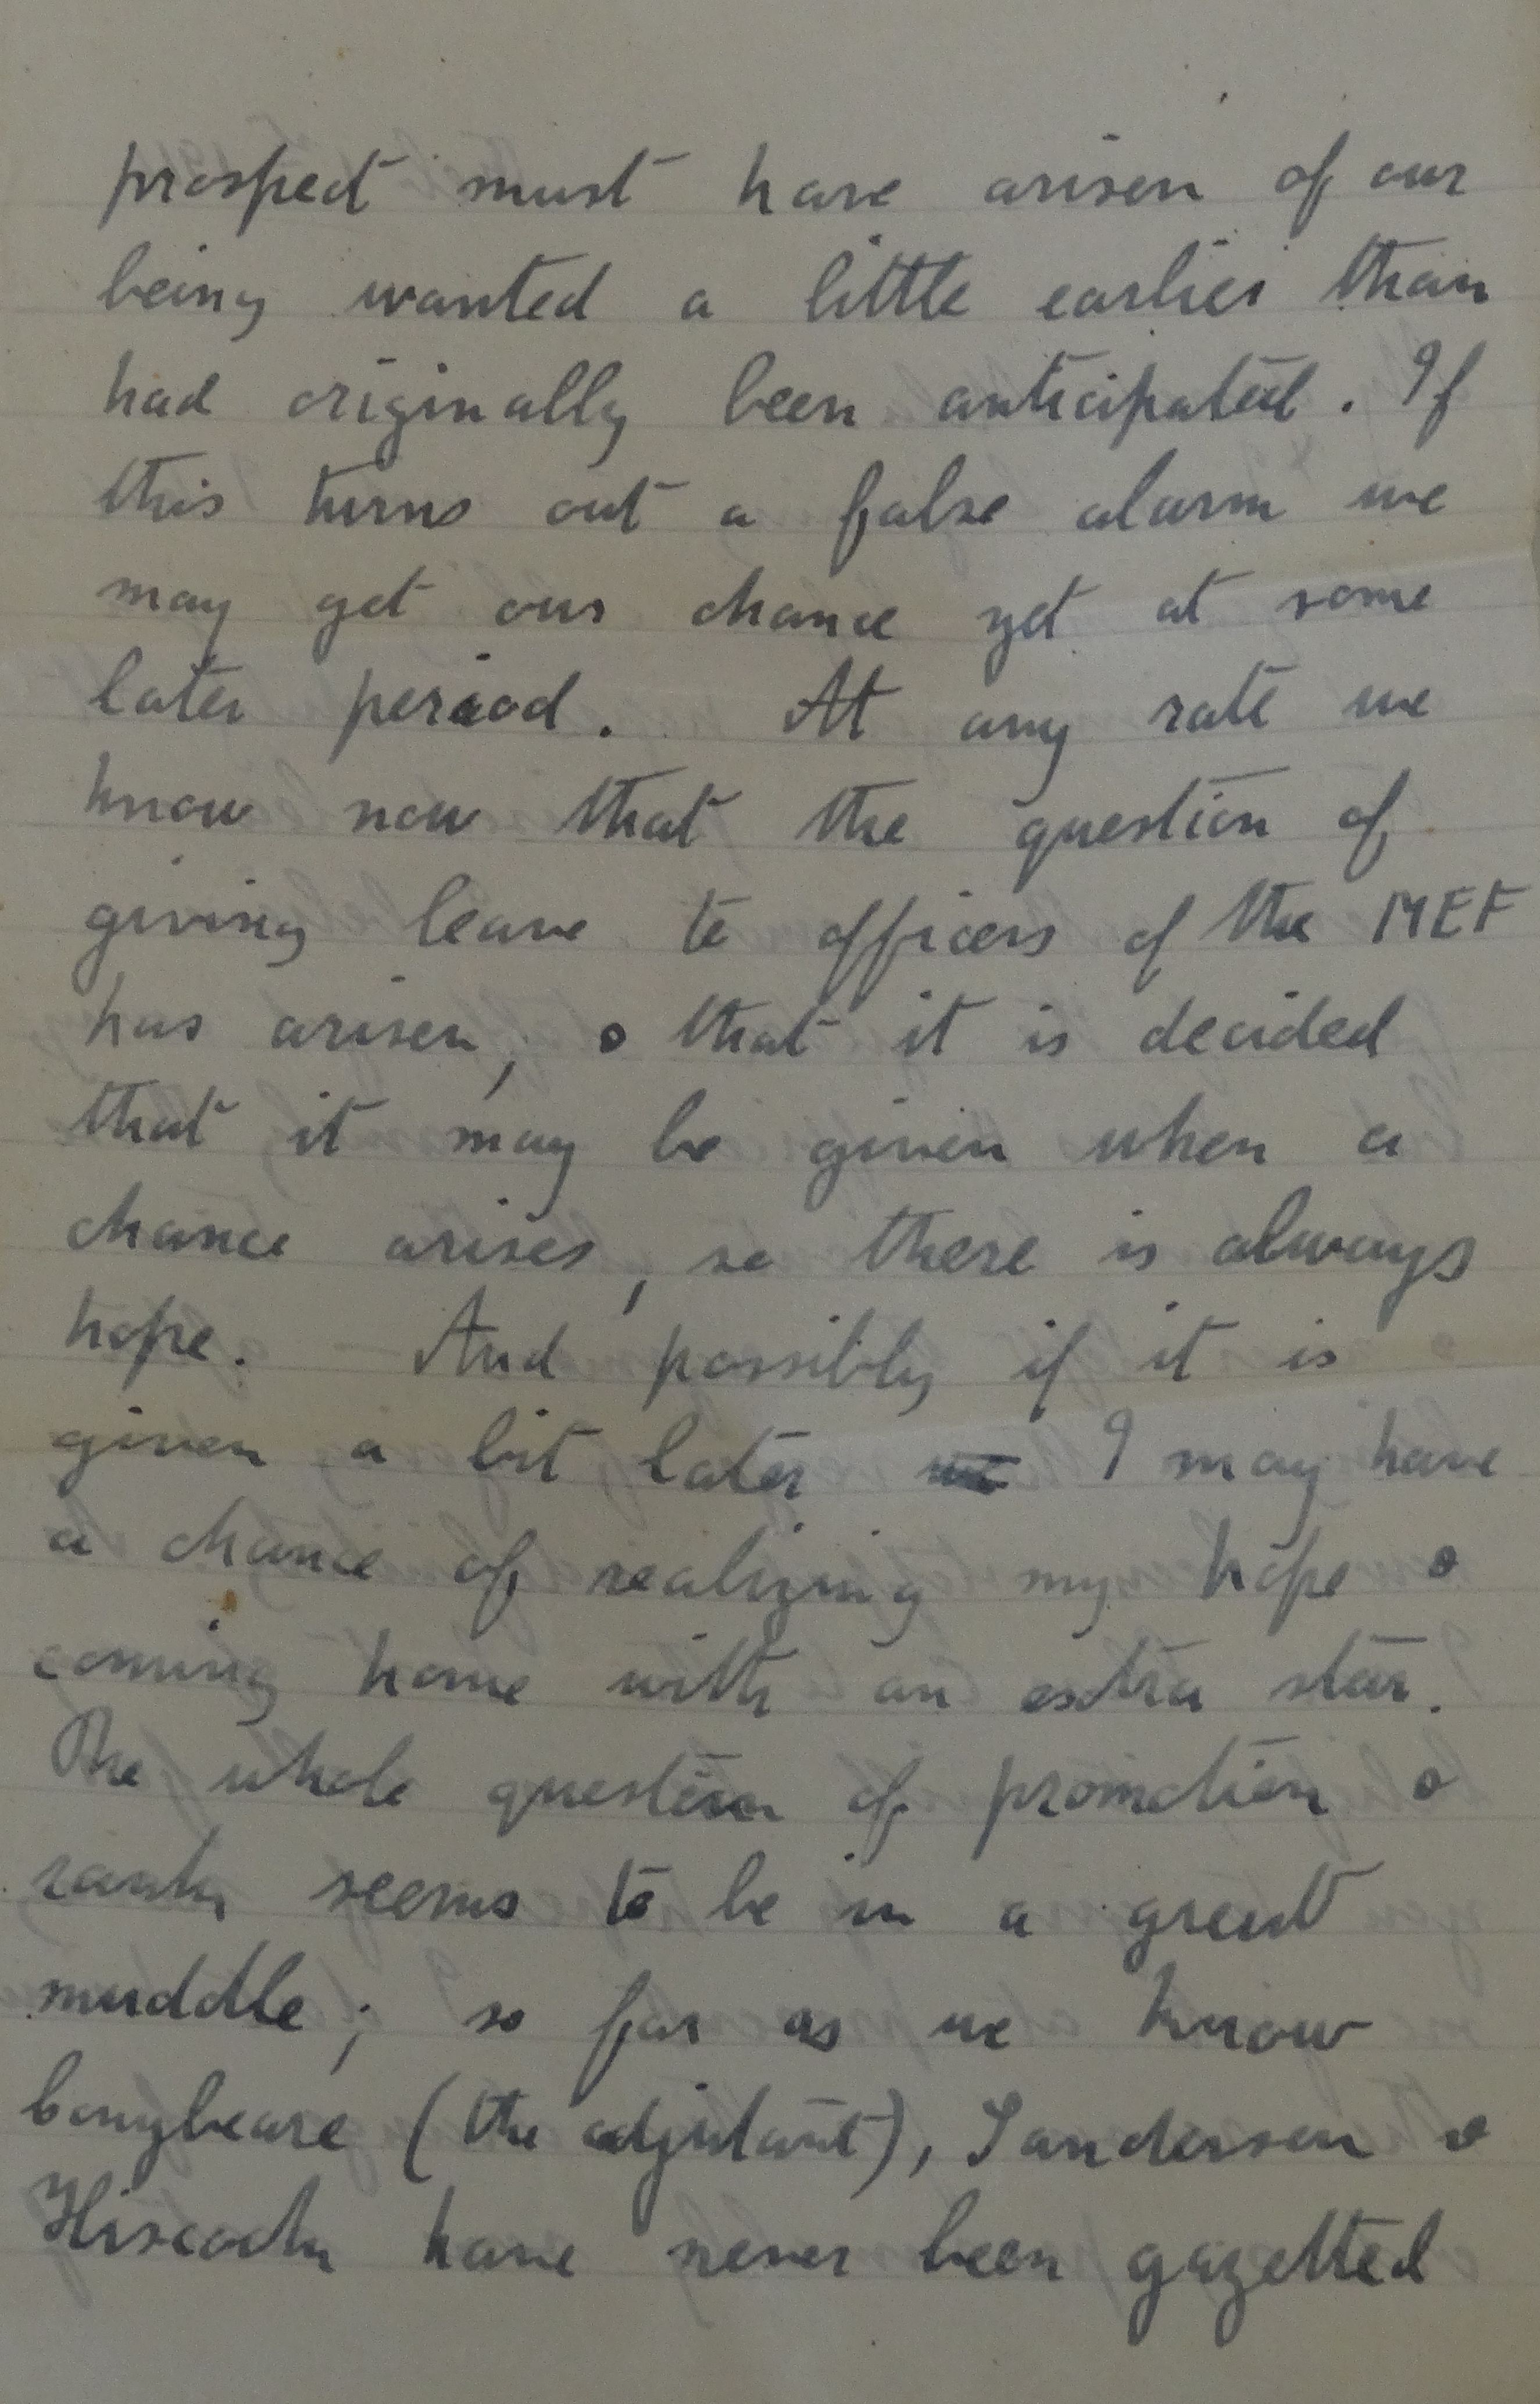 prospect must have arisen of our
being wanted a little earlier than
had originally been anticipated. If
this turns out a false alarm we
may get our chance yet at some
later period. At any rate we
know now that the question of
giving leave to officers of the MEF
has arisen, & that it is decided
that it may be given when a
chance arises, so there is always
hope. And possibly if it is
given a bit later I may have
a chance of realizing my hope &
coming home with an extra star.
The whole question of promotion &
rank seems to be in a great
muddle; so far as we know
Conybeare (the adjutant), Sanderson &
Hiscock have never been gazetted